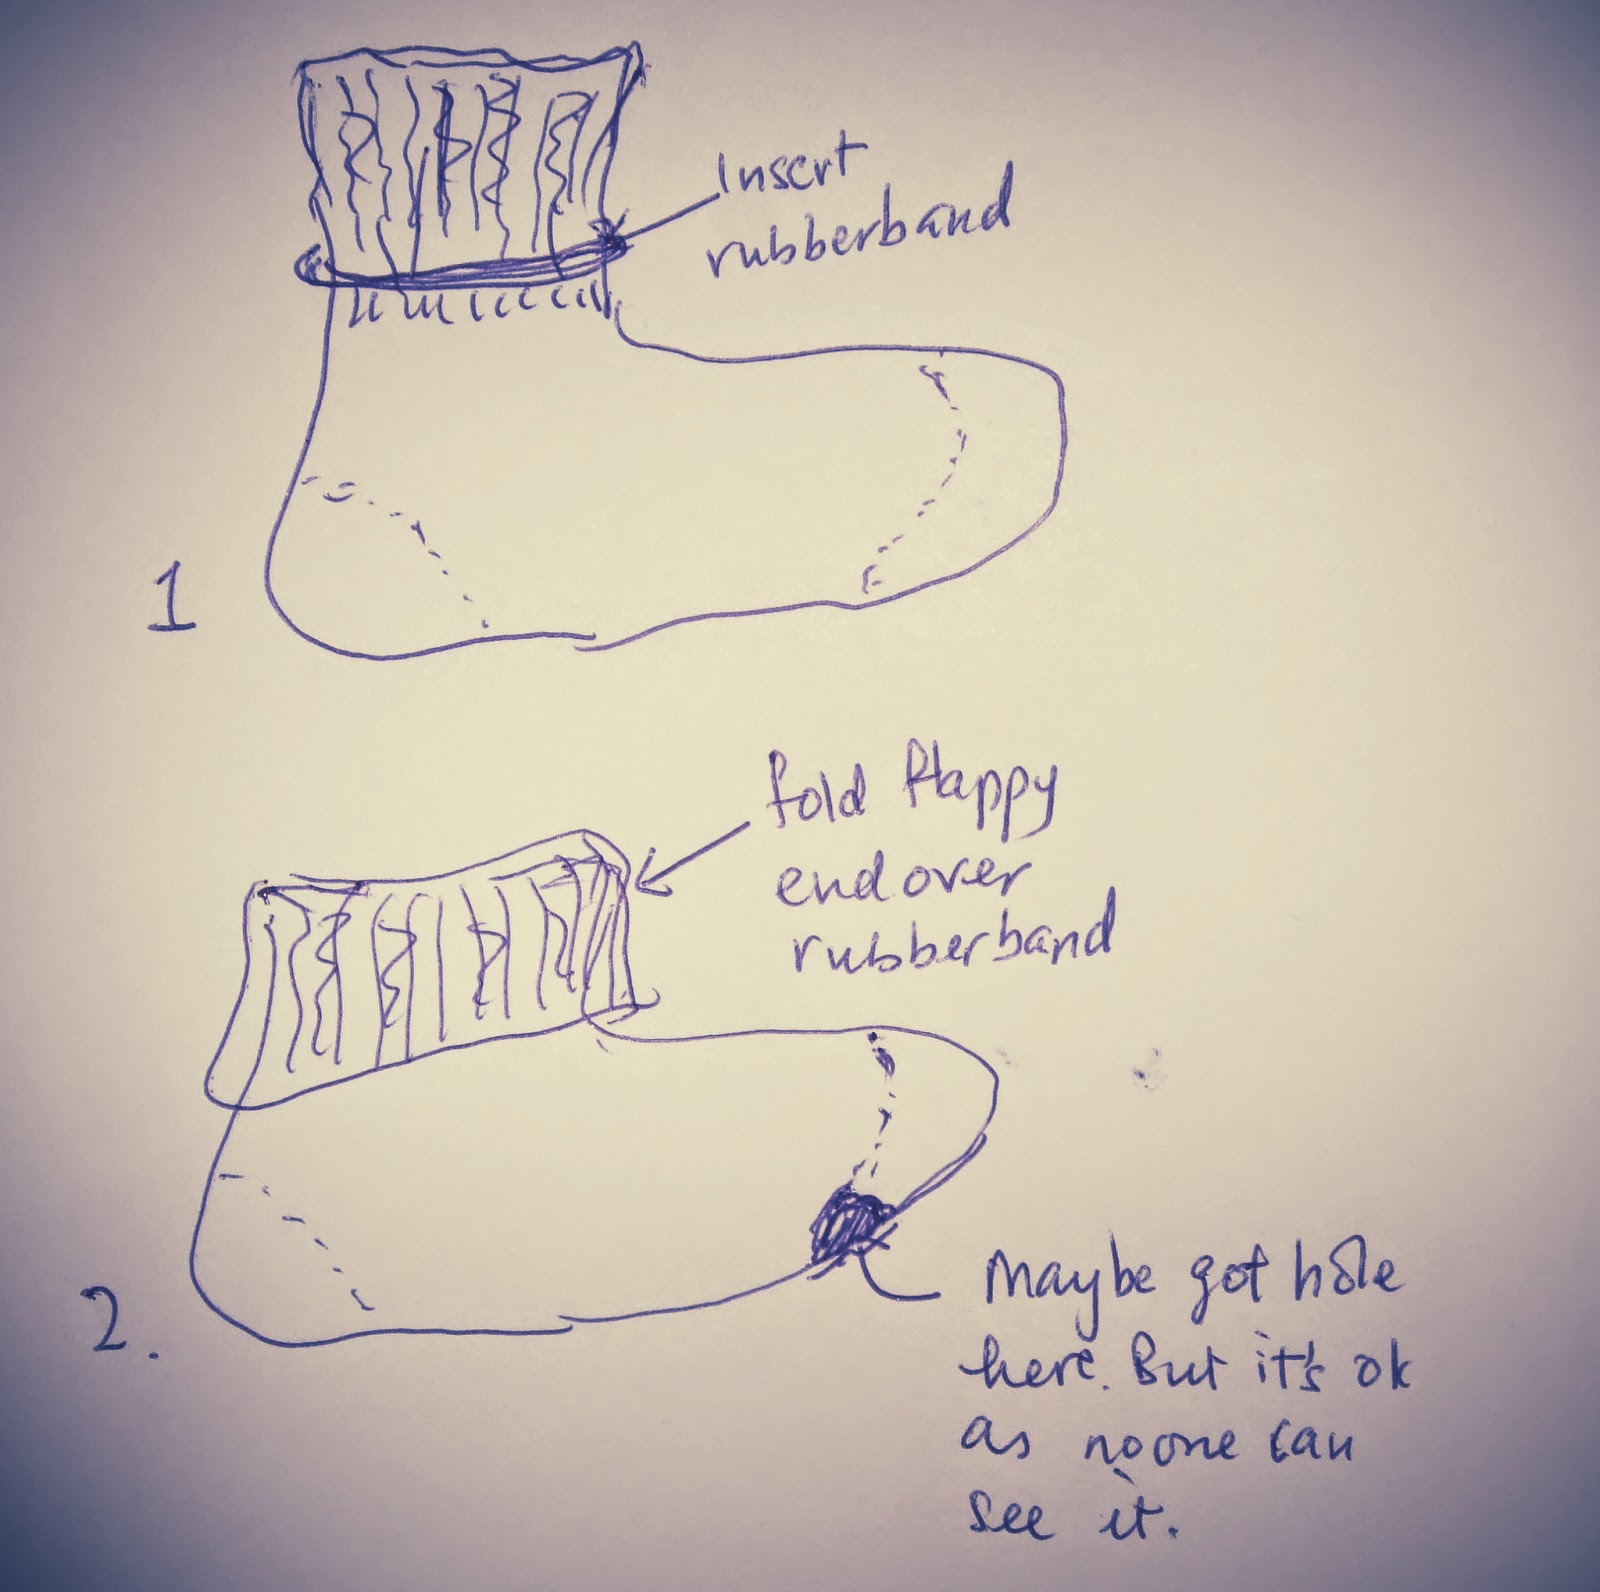 Insert
rubberband
1
fold flappy
end over
rubberband
2.
Maybe got hole
here. But it's ok
as no one can
see it.